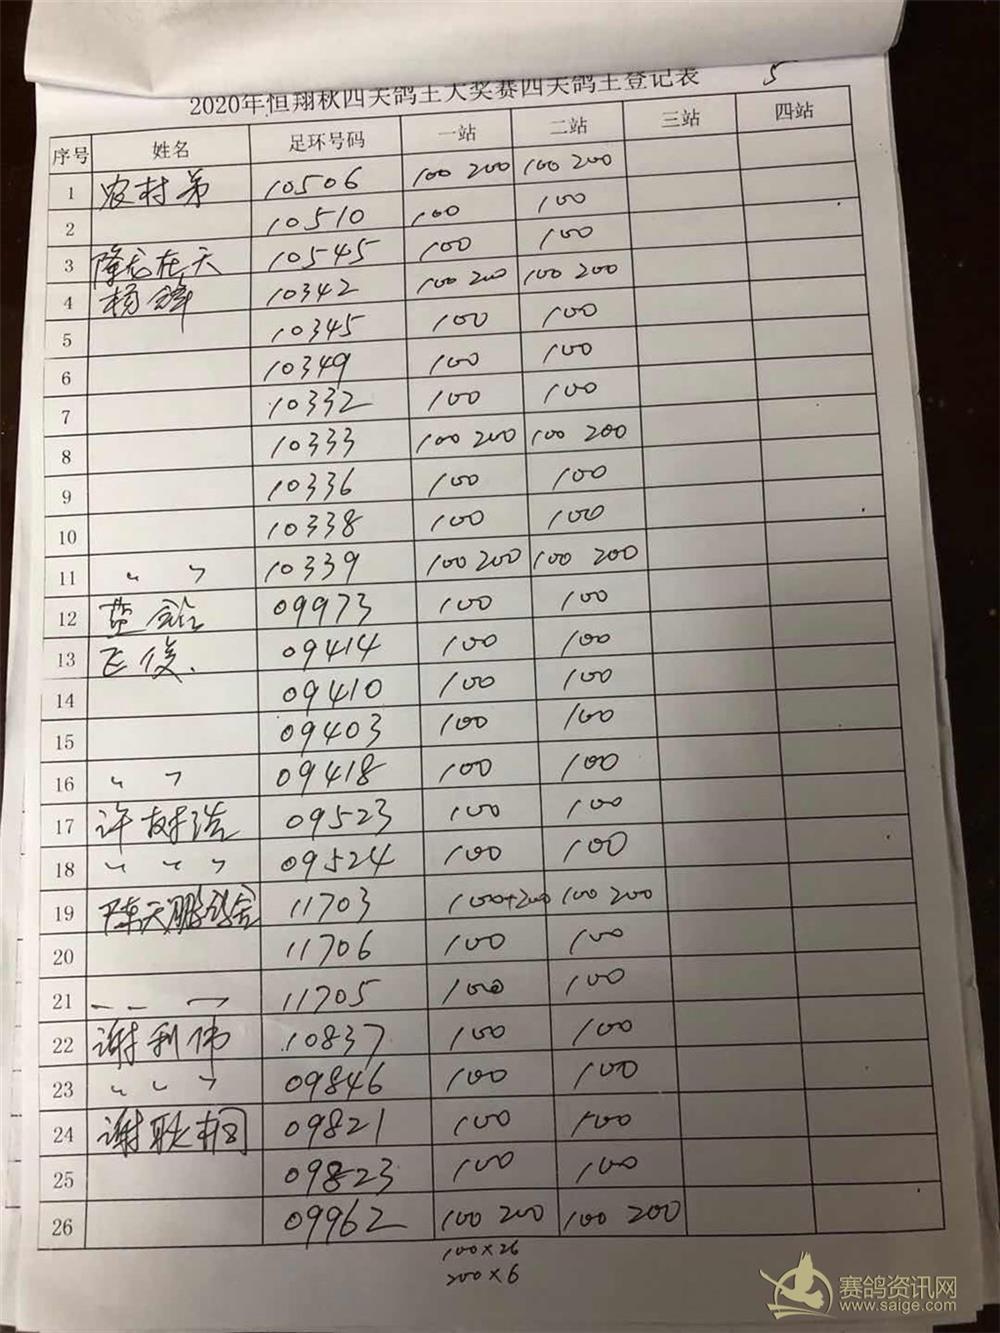 5
2020年恒翔秋四关鸽王大奖赛四关鸽王登记表
序号 姓名 足环号码 一站 二站 三站 四站
1 农村弟 10506 100 200 100 200
2 10510 100 100
3 降龙在天 10545 100 100
4 杨锋 10342 100 200 100 200
5 10345 100 100
6 10349 100 100
7 10332 100 100
8 10333 100 200 100 200
9 10336 100 100
10 10338 100 100
11 〃 〃 10339 100 200 100 200
12 09973 100 100
13 飞俊. 09414 100 100
14 09410 100 100
15 09403 100 100
16 〃 〃 09418 100 100
17 许树浩 09523 100 100
18 〃 〃 〃 09524 100 100
19 陈天鹏 11703 100+200 100 200
20 11706 100 100
21 — — — 11705 100 100
22 谢利伟 10837 100 100
23 〃 〃 〃 09846 100 100
24 谢耿桐 09821 100 100
25 09823 100 100
26 09962 100 200 100 200
100×26
200×6
赛鸽资讯网
www.saige.com